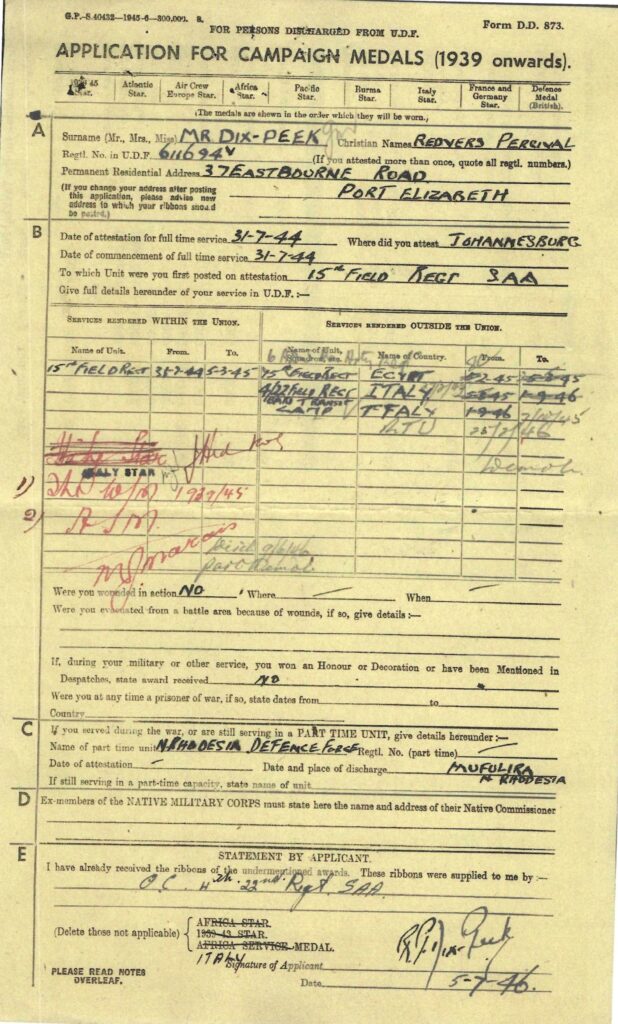 G.P.-S.40432—1945-6—300,000. S.
FOR PERSONS DISCHARGED FROM U.D.F.
Form D.D. 873.
APPLICATION FOR CAMPAIGN MEDALS (1939 onwards).
45 Star. Atlantic Star. Air Crew Europe Star. Africa Star. Pacific Star. Burma Star. Italy Star. France and Germany Star. Defence Medal (British).
(The medals are shewn in the order which they will be worn.)
A
Surname (Mr., Mrs., Miss) MR DIX-PEEK Christian Names REDVERS PERCIVAL
Regtl. No. in U.D.F. 611694V (If you attested more than once, quote all regtl. numbers.)
Permanent Residential Address 37 EASTBOURNE ROAD
(If you change your address after posting this application, please advise new address to which your ribbons should be posted.)
PORT ELIZABETH
B
Date of attestation for full time service 31-7-44 Where did you attest JOHANNESBURG
Date of commencement of full time service 31-7-44
To which Unit were you first posted on attestation 15TH FIELD REGT SAA
Give full details hereunder of your service in U.D.F. :—
SERVICES RENDERED WITHIN THE UNION. SERVICES RENDERED OUTSIDE THE UNION.
Name of Unit. From. To. Name of Unit, Name of Country. From. To.
15TH FIELD REGT 5-3-45 FIELD REGT EGYPT
4/22 FIELD REGT ITALY 1-9-46
TRANSIT CAMP ITALY 1-9-46 2/10/45
RTU 25/2/46
Demob.
ITALY STAR
1) The W/M 1939/45
2) A S M.
Were you wounded in action NO Where — When —
Were you evacuated from a battle area because of wounds, if so, give details :—
If, during your military or other service, you won an Honour or Decoration or have been Mentioned in
Despatches, state award received NO
Were you at any time a prisoner of war, if so, state dates from to
Country
C
If you served during the war, or are still serving in a PART TIME UNIT, give details hereunder :—
Name of part time unit N. RHODESIA DEFENCE FORCE Regtl. No. (part time) —
Date of attestation — Date and place of discharge MUFULIRA
N RHODESIA
If still serving in a part-time capacity, state name of unit
D
Ex-members of the NATIVE MILITARY CORPS must state here the name and address of their Native Commissioner
E
STATEMENT BY APPLICANT.
I have already received the ribbons of the undermentioned awards. These ribbons were supplied to me by :—
O.C. 4th. 22nd. Regt. SAA
(Delete those not applicable)
AFRICA STAR.
1939-43 STAR.
AFRICA SERVICE MEDAL.
ITALY
Signature of Applicant R P Dix-Peek
Date 5-7-46.
PLEASE READ NOTES OVERLEAF.